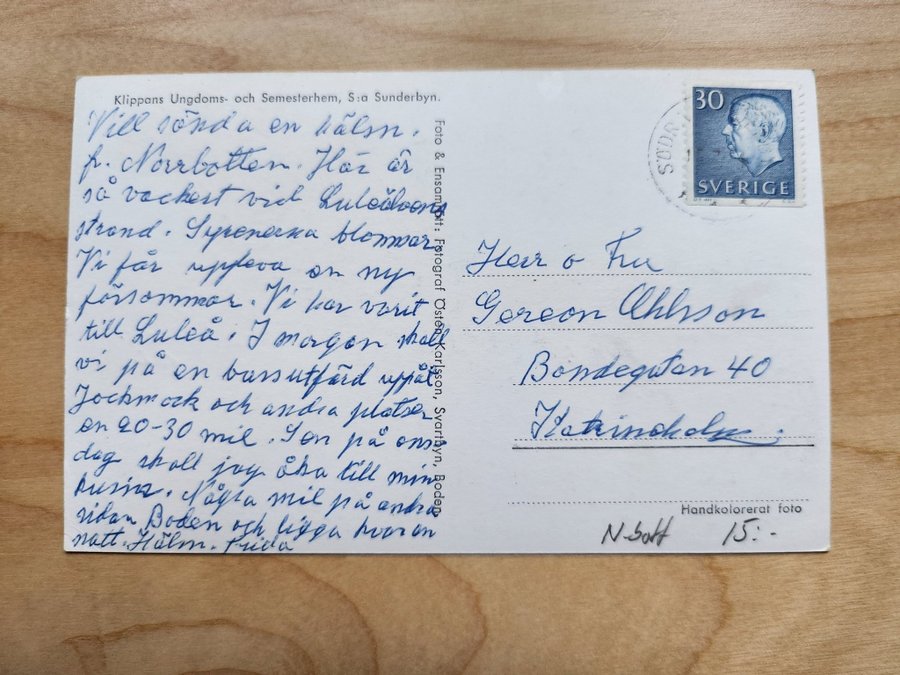 Klippans Ungdoms- och Semesterhem, S:a Sunderbyn.
Vill sända en hälsn.
fr. Norrbotten. Här är
så vackert vid Luleälvens
strand. Syrenerna blommar.
Vi får uppleva en ny
försommar. Vi har varit
till Luleå. I morgon skall
vi på en bussutfärd uppåt
Jockmock och andra platser
en 20-30 mil. Sen på ons
dag skall jag åka till min
kusin. Några mil på andra
sidan Boden och ligga kvar en
natt. Hälsn. Frida
Foto & Ensamrätt: Fotograf Östen Karlsson, Svartbyn, Boden
SÖDR
30
SVERIGE
Herr o Fru
Gereon Ohlsson
Bondegatan 40
Katrineholm.
Handkolorerat foto
15:-